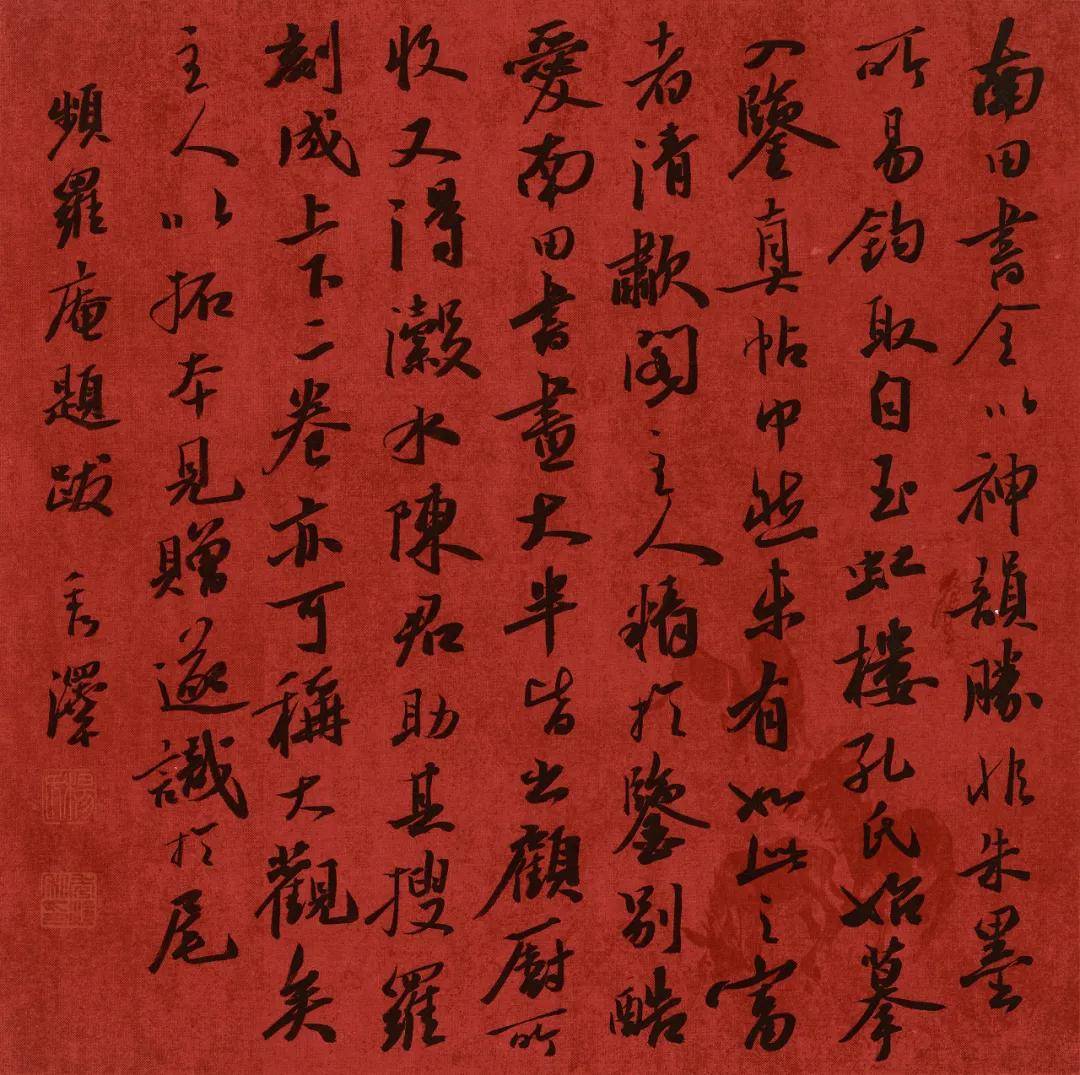 南田書全以神韻勝非朱墨
所易鈎取自玉虹樓孔氏始摹
入鑒真帖中然未有如此之富
者清歗閣主人精於鑒別酷
愛南田書畫大半皆出顧厨所
收又得瀫水陳君助其搜羅
刻成上下二卷亦可稱大觀矣
主人以拓本見贈遂識於尾
頻羅庵題跋 秀澤